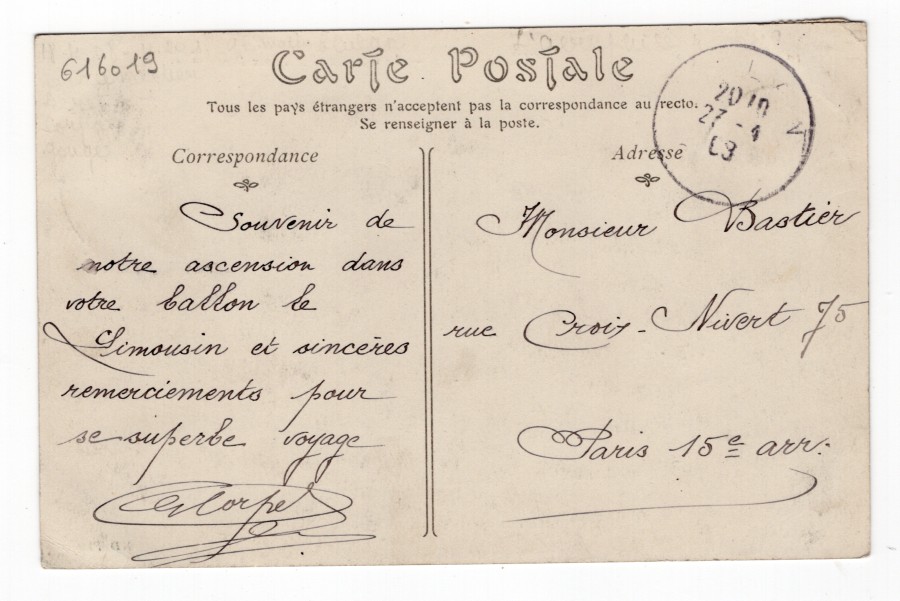 616019
Carte Postale
Tous les pays étrangers n'acceptent pas la correspondance au recto.
Se renseigner à la poste.
Correspondance
Adresse
27 - 4
Souvenir de
notre ascension dans
votre ballon le
Limousin et sincères
remerciements pour
se superbe voyage
Monsieur Bastier
rue Croix-Nivert 75
Paris 15e arr.